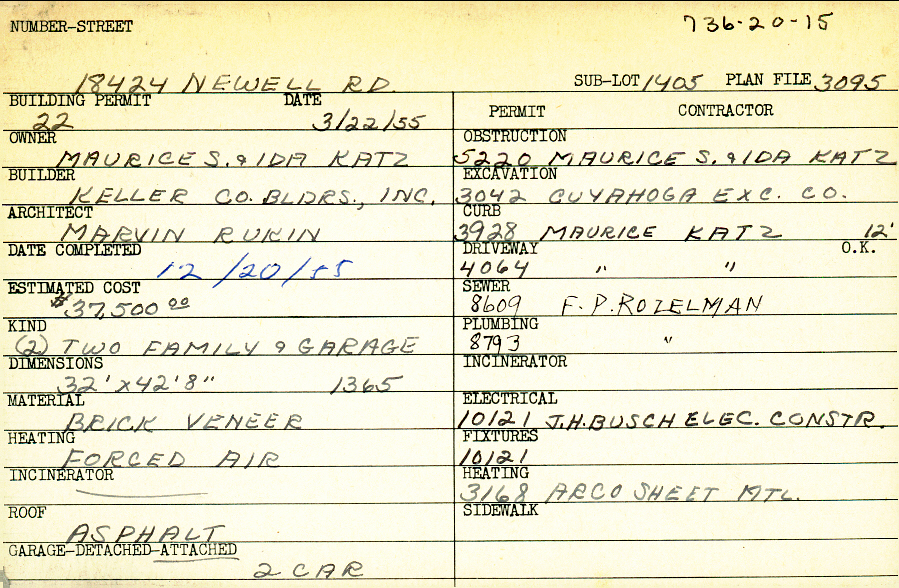 NUMBER-STREET
736-20-15
18424 NEWELL RD.
SUB-LOT 1405 PLAN FILE 3095
BUILDING PERMIT DATE
22 3/22/55
OWNER
MAURICE S. & IDA KATZ
BUILDER
KELLER CO. BLDRS., INC.
ARCHITECT
MARVIN RUKIN
DATE COMPLETED
12/20/55
ESTIMATED COST
$37,500 00
KIND
(2) TWO FAMILY & GARAGE
DIMENSIONS
32' x 42' 8" 1365
MATERIAL
BRICK VENEER
HEATING
FORCED AIR
INCINERATOR
ROOF
ASPHALT
GARAGE-DETACHED-ATTACHED
2 CAR
PERMIT CONTRACTOR
OBSTRUCTION
5220 MAURICE S. & IDA KATZ
EXCAVATION
3042 CUYAHOGA EXC. CO.
CURB
3928 MAURICE KATZ 12'
DRIVEWAY O.K.
4064 " "
SEWER
8609 F. P. ROZELMAN
PLUMBING
8793 "
INCINERATOR
ELECTRICAL
10121 J.H. BUSCH ELEC. CONSTR.
FIXTURES
10121
HEATING
3168 ARCO SHEET MTL.
SIDEWALK